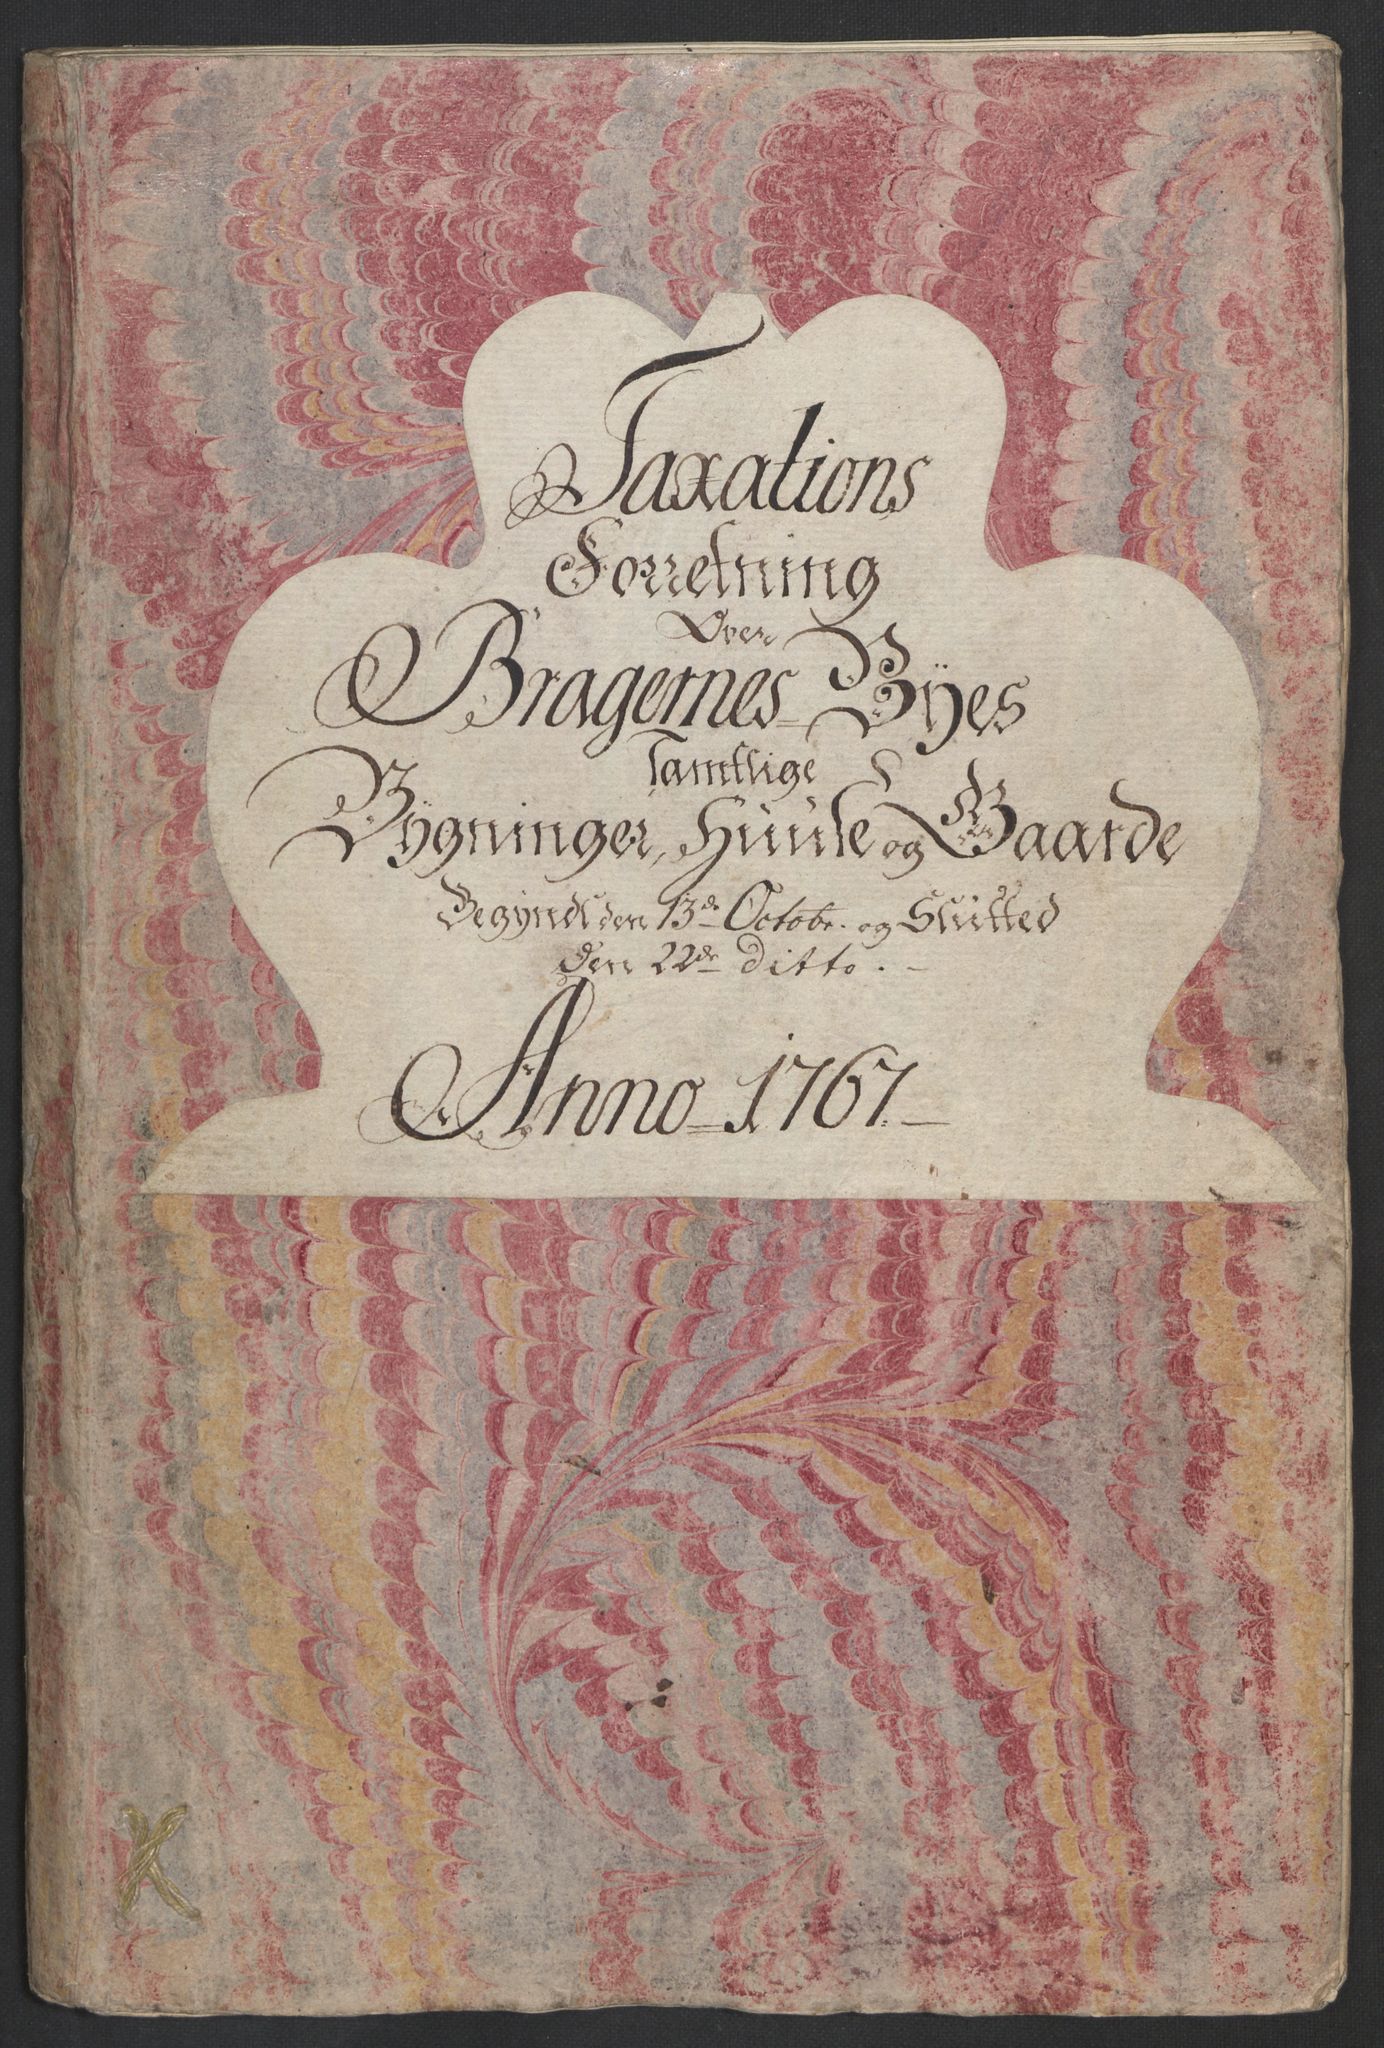 Taxations
Forretning
Over
Bragernes Byes
samtlige
Bygninger, Huuse og Gaarde
Begyndt den 13de Octobr. og Slutted
den 22de ditto.
Anno 1767